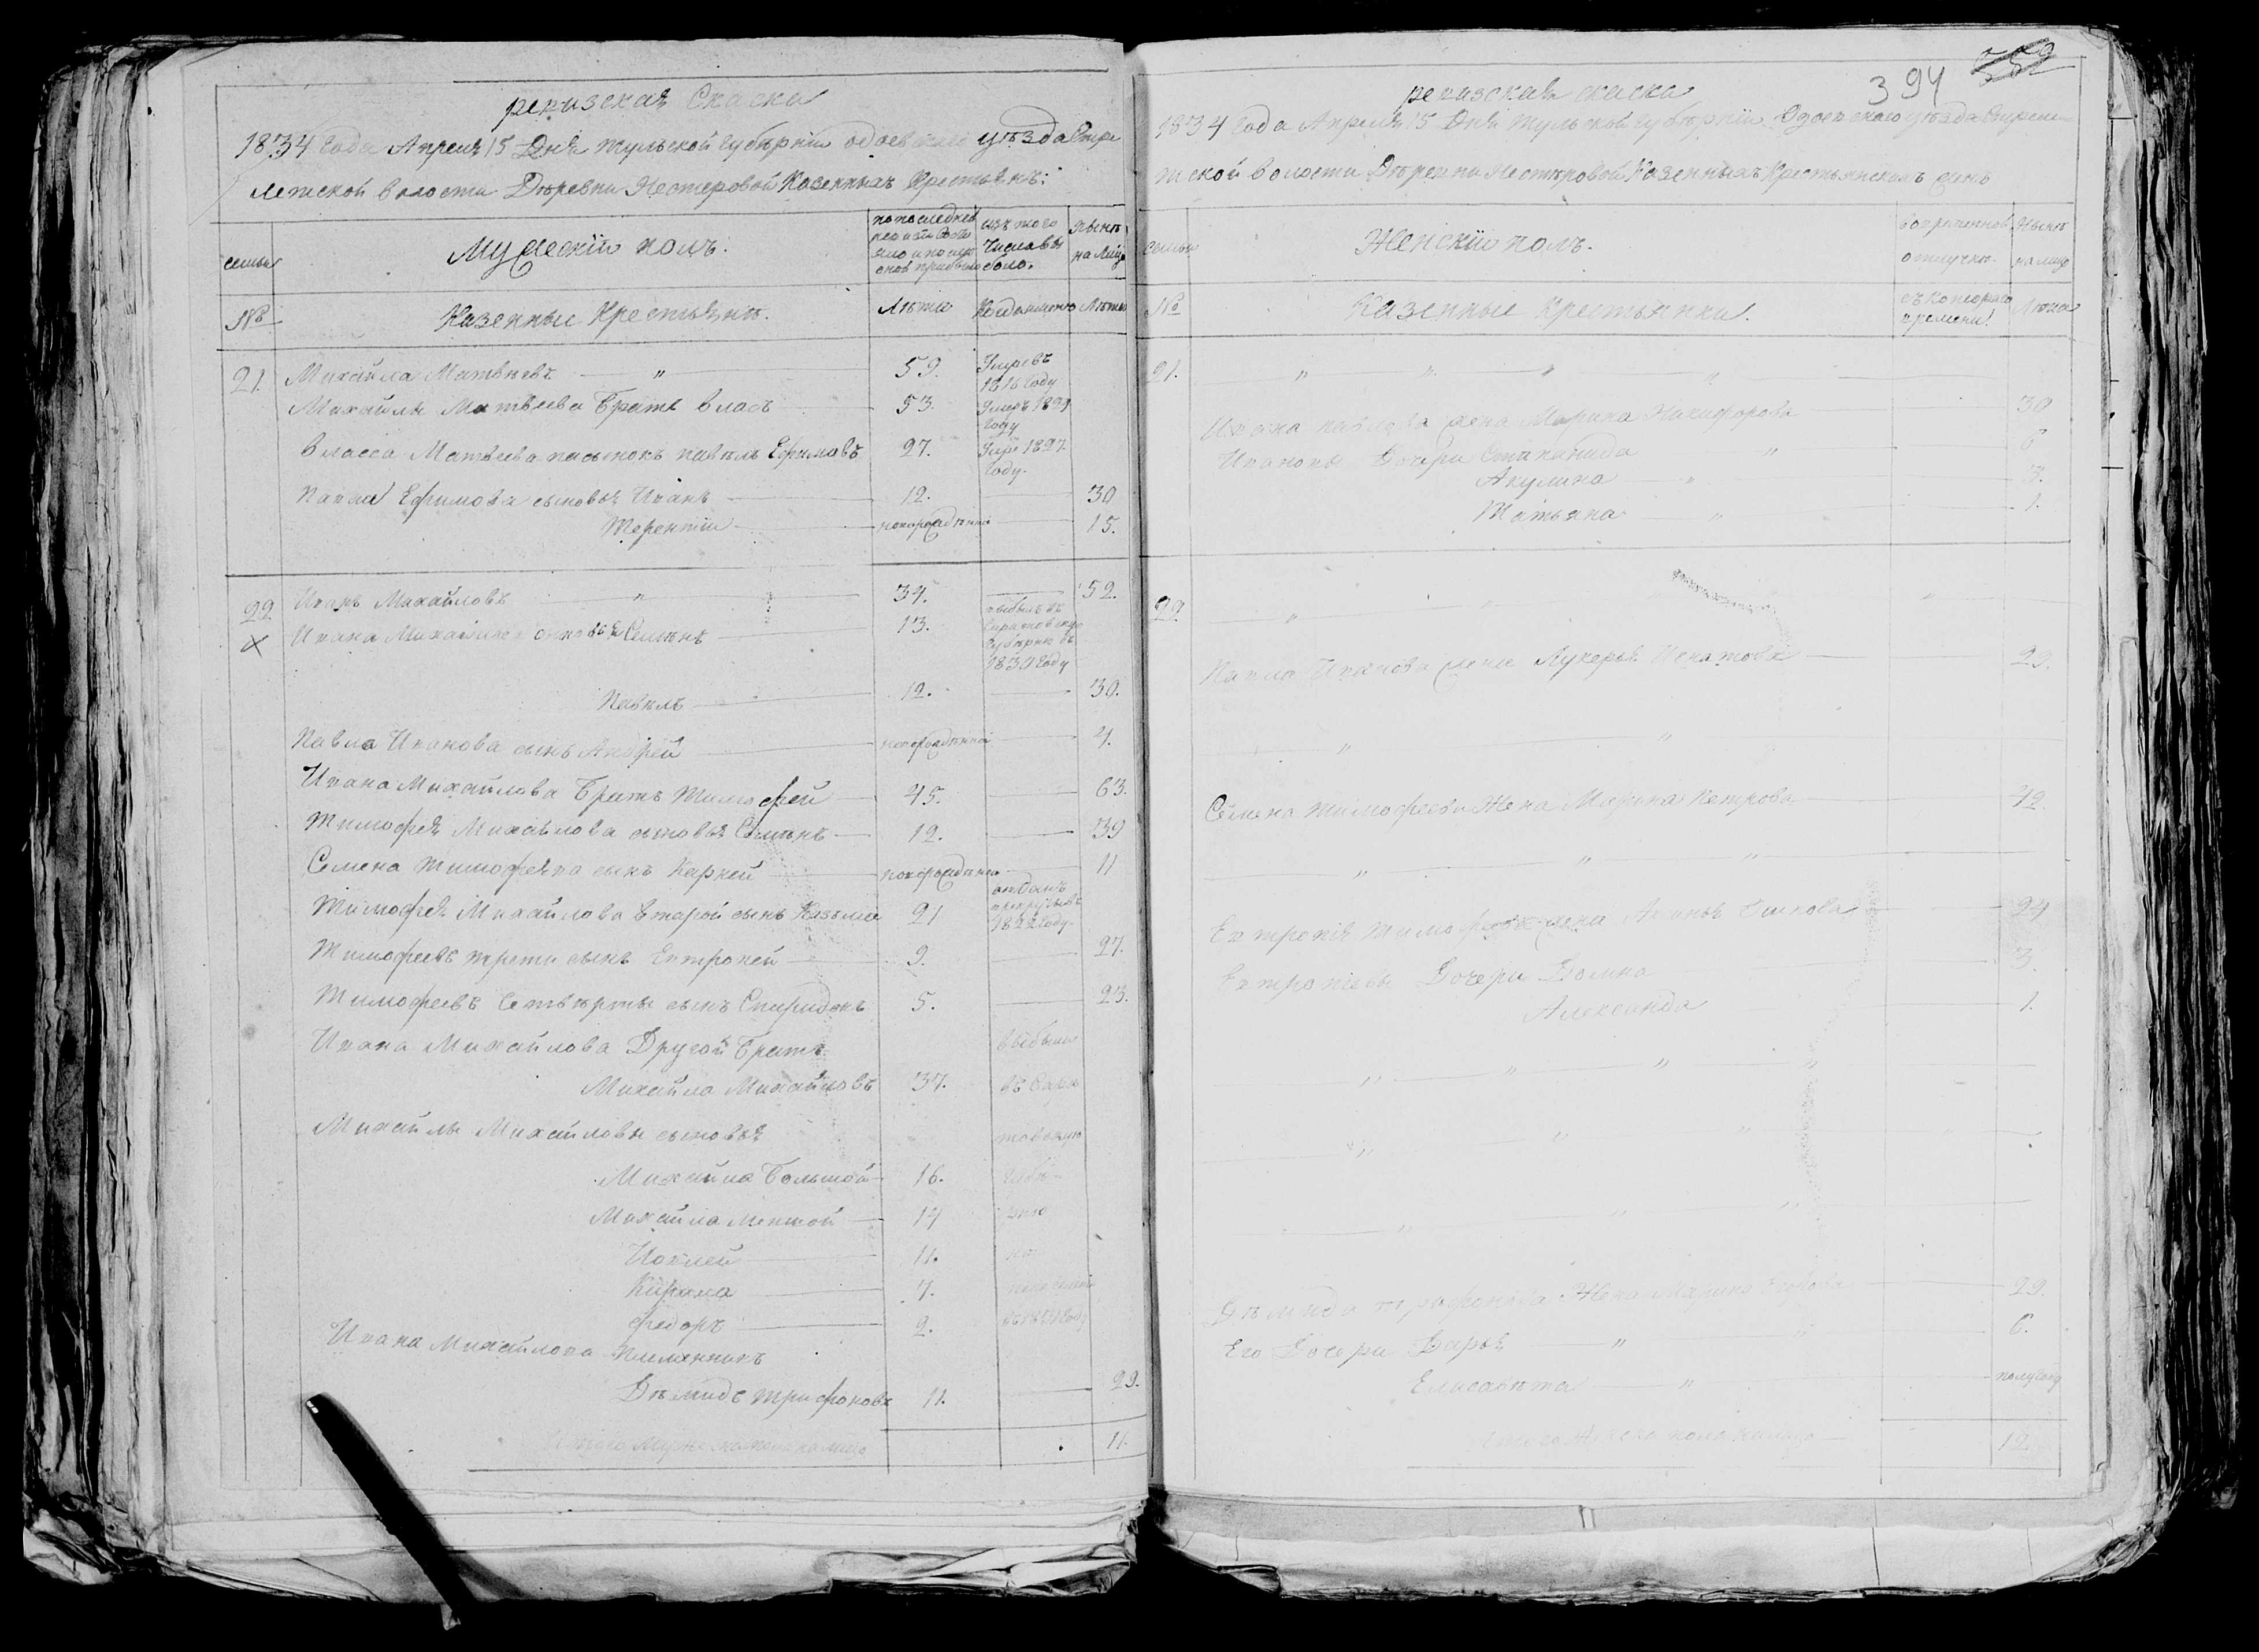 ревизская Скаска
1834 года Апреля 15 Дня тульской губернии одоевскаго уезда Стре
летской волости Деревни Нестеровой Казенныхъ Крестьянъ:
семьи
Мужескiй полъ.
по последней
ревизiи состо
яло и после
оной прибыло
изъ того
числа вы
было.
ныне
на лицо
№
Казенные Крестьяне.
Лета
Когда имянно
Лета
21. Михайла Матвеевъ 59. Умре въ
1816 году
Михайлы Матвеева братъ власъ 53. Умеръ
году
власса Матвеева пасынокъ павелъ Ефимовъ 27. Умре 1827
году.
Павла Ефимова сыновья Иванъ 12. 30
Терентiй новорожденной 15.
22 Иванъ Михайловъ 34. 52.
Ивана Михайлова сыновья Семенъ 13. выбылъ въ
Саратовскую
губернию въ
году
Павелъ 12. 30.
Павла Иванова сынъ Андрей новорожденной 4.
Ивана Михайлова братъ Тимофей 45. 63.
Тимофея Михайлова сыновья Семенъ 12. 30
Семена Тимофеева сынъ Карней новорожденной 11
Тимофея Михайлова второй сынъ Казьма 21 отданъ
в рекруты въ
1822 году.
Тимофеевъ трети сынъ Евтропей 9. 27.
Тимофеевъ Четверты сынъ Спиридонъ 5. 23.
Ивана Михайлова Другой братъ выбыли
Михайла Михайловъ 37. въ Сара
Михайлы Михайловы сыновья товскую
Михайла большой 16. губер
Михайла меншой 14 нию
11. на
Кирила 7. поселени
Федоръ 2.
Ивана Михайлова племянникъ
Демидъ Трифоновъ 11. 29.
Итого Мужеска пола на лицо 11.
394
ревизская скаска
1834 года Апреля 15 Дня Тульской губернии Одоевскаго уезда Стреле
тской волости Деревни Нестеровой Казенныхъ Крестьянскихъ
семьи
Женскiй полъ.
во временной
отлучке.
Ныне
на лицо
№
Казенные крестьянки.
съ котораго
времени.
Лета
21.
Ивана павлова жена Марина Никифорова 30
Ивановы Дочери Степанида 6
Акулина 3.
Татьяна 1.
22.
Павла Иванова жена Лукерья Игнатова 29.
Семена Тимофеева Жена Марина Петрова 42.
Евтропiя Тимофеева жена 24
Евтропiевы Дочери Домна 3.
Александа 1.
Демида трифонова Жена 29.
Его Дочери Дарья 6.
Елисавета полугоду
Итого Женска пола на лицо 12